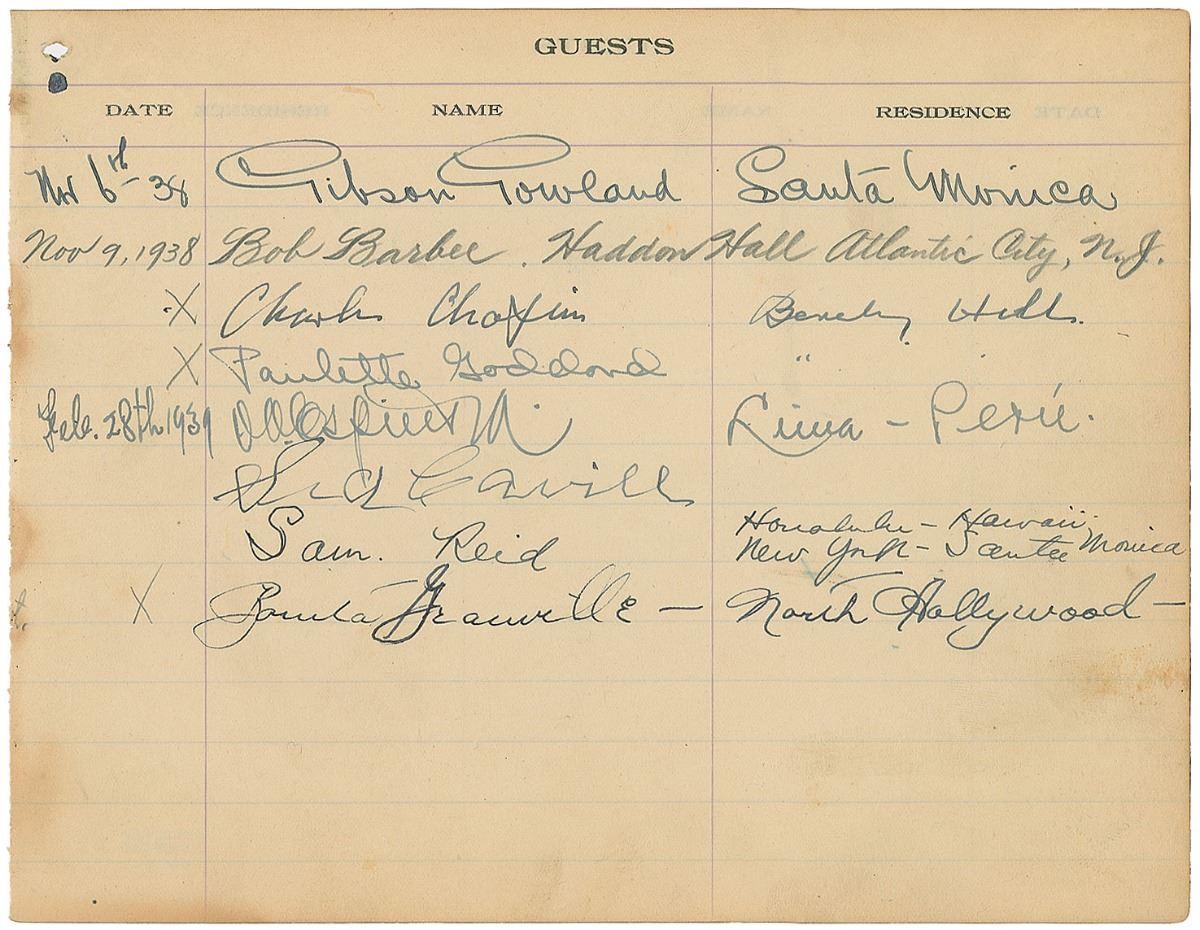 GUESTS
DATE NAME RESIDENCE
Nov 6th - 38 Gibson Gowland Santa Monica
Nov 9, 1938 Bob Barbee. Haddon Hall Atlantic City, N.J.
X Charles Chaplin Beverly Hills.
X Paulette Goddard "
Feb. 28th 1939 Lima - Perú.
Sid Cavill
Honolulu - Hawaii
Sam. Reid New York - Santa Monica
X Bonita Granville - North Hollywood -